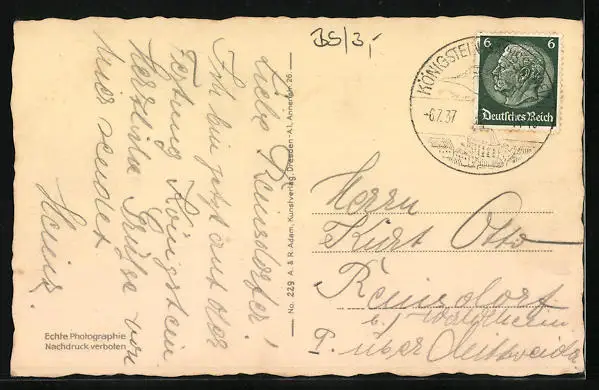 BS/3,-
Liebe Reinsdorfer!
Ich bin jetzt auf der
Festung Königstein
Herzliche Grüße von
hier sendet
Heinz.
Echte Photographie
Nachdruck verboten
No. 229 A. & R. Adam, Kunstverlag, Dresden-A1, Annenstr. 26
KÖNIGSTEIN
-6.7.37
6 6
Deutsches Reich
Herrn
Kurt Otto
Reinsdorf
b./ Waldheim
P. über